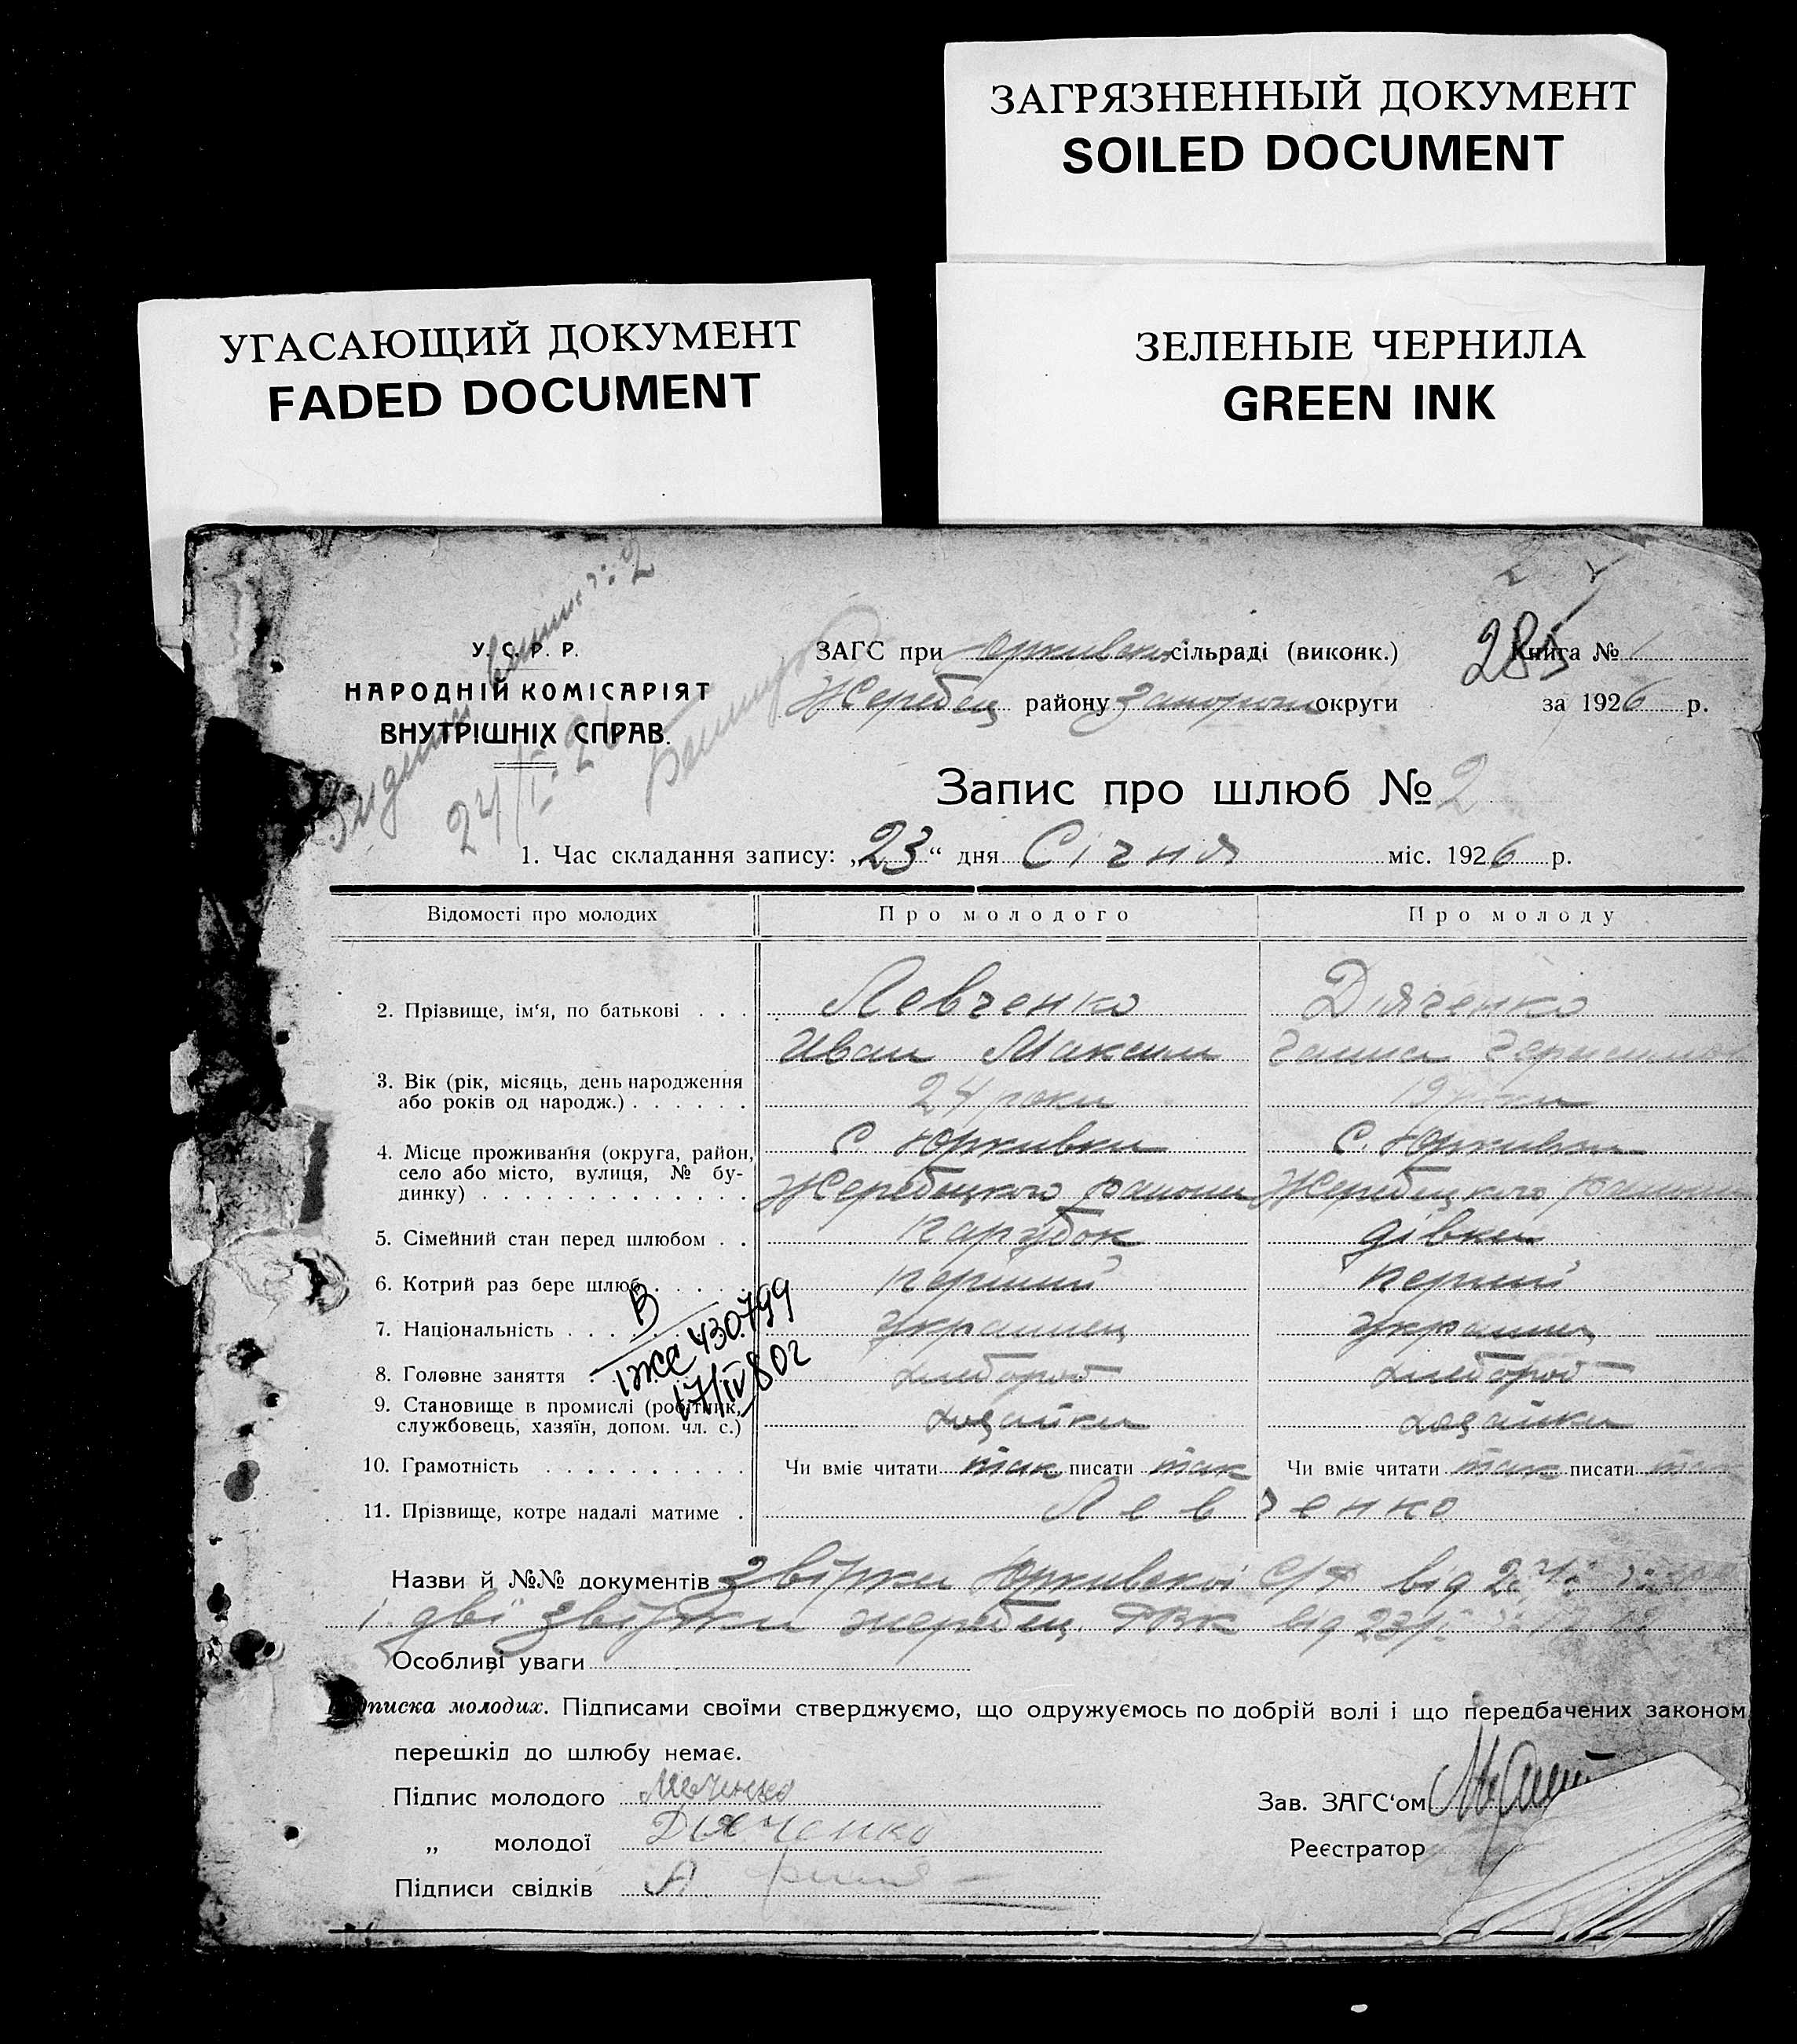 ЗАГРЯЗНЕННЫЙ ДОКУМЕНТ
SOILED DOCUMENT
УГАСАЮЩИЙ ДОКУМЕНТ
FADED DOCUMENT
ЗЕЛЕНЫЕ ЧЕРНИЛА
GREEN INK
У. С. Р. Р.
НАРОДНІЙ КОМІСАРІЯТ
ВНУТРІШНІХ СПРАВ.
24/I-26
285
ЗАГС при Юрківской сільраді (виконк.) Книга № 1
Жеребец району Запорож округи за 1926 р.
Запис про шлюб № 2
1. Час складання запису: „23“ дня Січня міс. 1926 р.
Відомості про молодих Про молодого Про молоду
2. Прізвище, ім‘я, по батькові . . . Левченко Дяченко
Иван Максим Ганна
3. Вік (рік, місяць, день народження
або років од народж.) . . . . . . 24 роки 19
4. Місце проживання (округа, район, с. Юркивки с. Юркивки
село або місто, вулиця, № бу-
динку) . . . . . . . . . . . . . Жеребецкого району Жеребецкого району
5. Сімейний стан перед шлюбом . . парубок дівка
6. Котрий раз бере шлюб . . . . перший перший
7. Національність . . . . Украинец Украинец
8. Головне заняття . хлебороб хлебороб
9. Становище в промислі (робітник,
службовець, хазяїн, допом. чл. с.) хазяйка
10. Грамотність . . . . . . . . . . Чи вміє читати так писати так Чи вміє читати так писати так
11. Прізвище, котре надалі матиме . Левченко
В
430799
17/IV 802
Назви й №№ документів звірки Юркивскої С/Р від
і дві звірки жеребец. РВК від 23/I
Особливі уваги
писка молодих. Підписами своїми стверджуємо, що одружуємось по добрій волі і що передбачених законом
перешкід до шлюбу немає.
Підпис молодого Зав. ЗАГС‘ом
„ молодої Дяченко Реєстратор
Підписи свідків